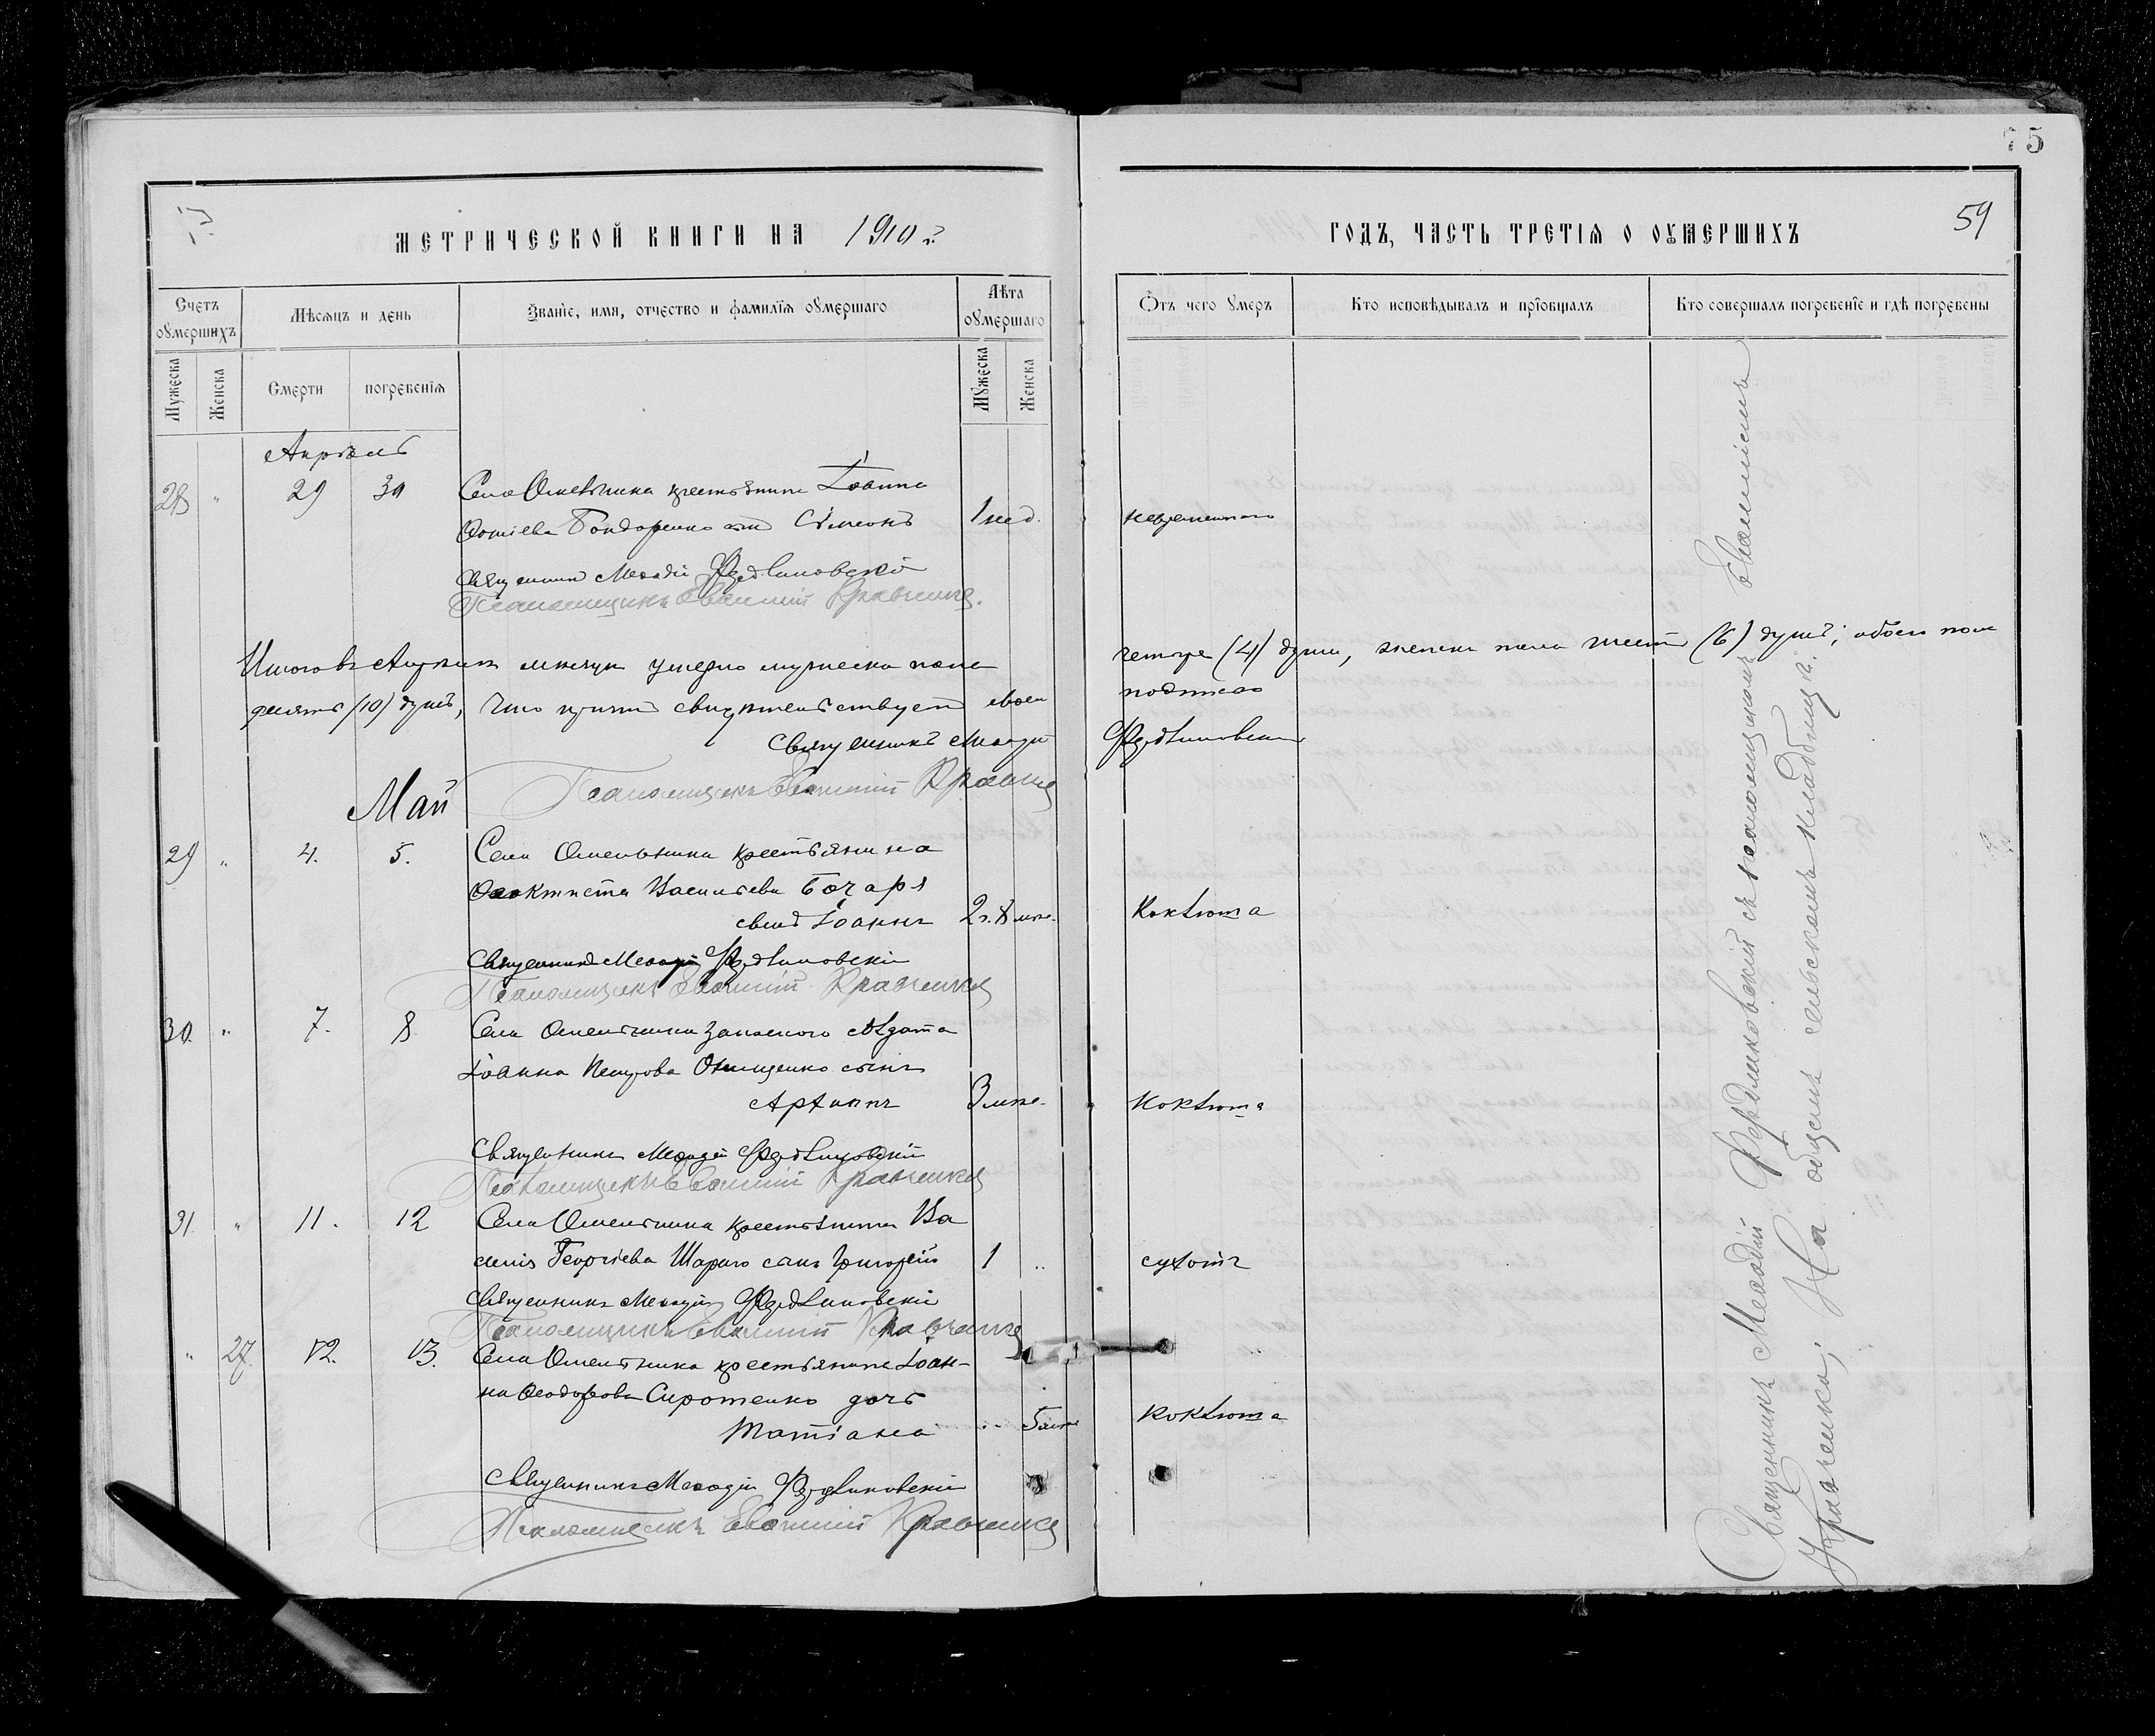 75
МЕТРИЧЕСКОЙ КНИГИ НА 1910 г.
ГОДЪ, ЧАСТЬ ТРЕТІЯ О ОУМЕРШИХЪ
59
Счетъ оумершихъ
Мѣсяцъ и день
Званіе, имя, отчество и фамилія оумершаго
Лѣта оумершаго
Отъ чего умеръ
Кто исповѣдывалъ и пріобщалъ
Кто совершалъ погребеніе и гдѣ погребены
Мужеска
Женска
Смерти
погребенія
Мужеска
Женска
Апрѣль
28 " 29 30 Села Омельника крестьянина Іоанна
Бондаренко сынъ Сѵмеонъ 1 нед.
Священникъ Меѳодій Фердликовскій
Псаломщикъ Евѳимій Кравченко.
Итого въ Апрѣлѣ мѣсяцѣ умерло мужеска пола четыре (4) души, женска пола шесть (6) душъ; обоего пола
десять (10) душъ, что причтъ свидѣтельствуетъ своею подписью
Священникъ Меѳодій Фердликовскій
Псаломщикъ Евѳимій Кравченко
Май
29 " 4. 5. Села Омельника крестьянина
Ѳеоктиста Васильева Бочаря
сынъ Іоаннъ 2 г. 8 мѣс. Коклюша
Священникъ Меѳодій Фердликовскій
Псаломщикъ Евѳимій Кравченко
30. " 7. 8. Села Омельника запаснаго солдата
Іоанна Петрова Онищенко сынъ
3 мѣс. Коклюша
Священникъ Меѳодій Фердликовскій
Псаломщикъ Евѳимій Кравченко
31. " 11. 12 Села Омельника крестьянина Ва
силія Георгіева Шараго сынъ Григорій 1 "
Священникъ Меѳодій Фердликовскій
Псаломщикъ Евѳимій Кравченко
" 27. 12. 13. Села Омельника крестьянина Іоан-
на Ѳеодорова Сиротенко дочь
Татіана " 5 мѣс Коклюша
Священникъ Меѳодій Фердликовскій
Псаломщикъ Евѳимій Кравченко
Священникъ Меѳодій Фердликовскій съ псаломщикомъ Евѳиміемъ
Кравченко; На общемъ сельскомъ кладбищѣ.